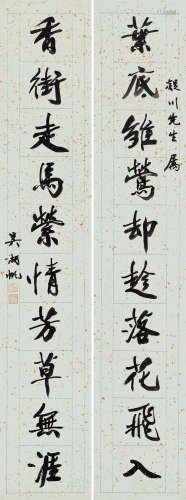 葉底雛鶯却趁落花飛入
穀川先生屬
香街走馬縈情芳草無涯
吳湖帆